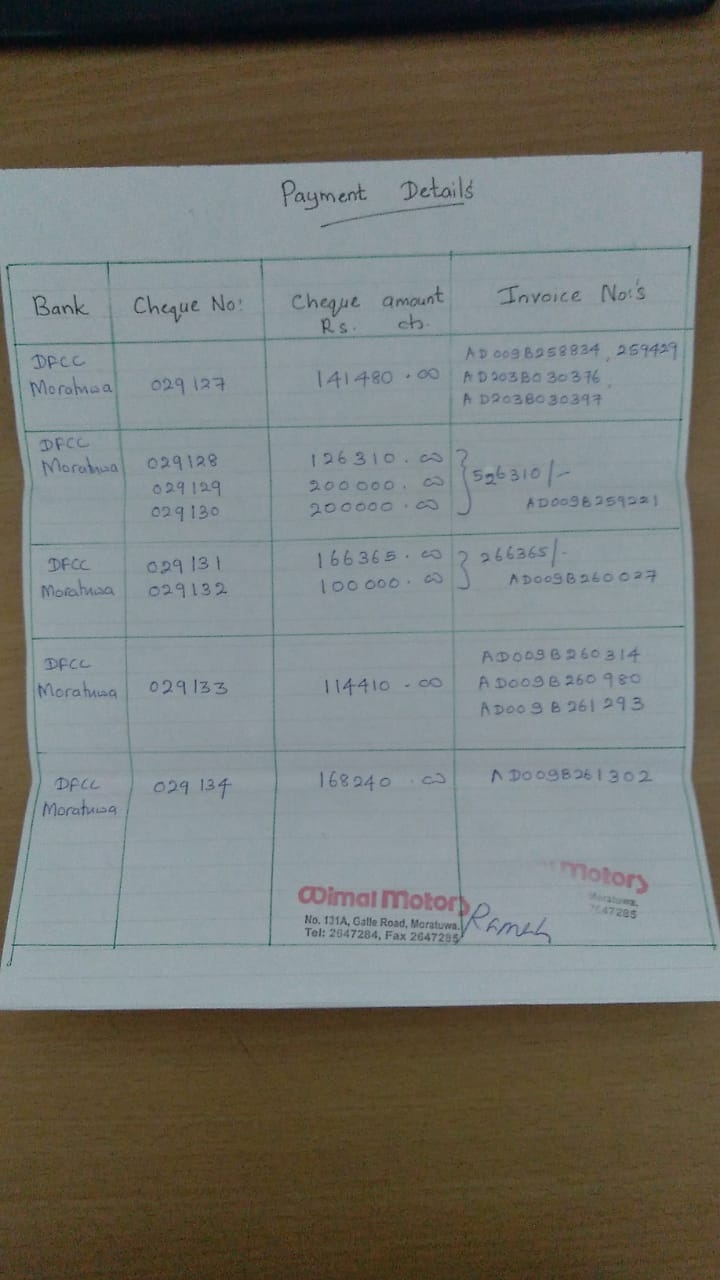 Payment Details
Bank Cheque No: Cheque amount Invoice No:s
Rs. cts.
DFCC AD009B258834, 259429
Moratuwa 029127 141480.00 AD203B030376,
AD203B030397
DFCC
Moratuwa 029128 126310.00
029129 200000.00 526310/-
029130 200000.00 AD009B259221
DFCC 029131 166365.00 266365/-
Moratuwa 029132 100000.00 AD009B260027
DFCC AD009B260314
Moratuwa 029133 114410.00 AD009B260980
AD009B261293
DFCC 029134 168240.00 AD009B261302
Moratuwa
Wimal Motors
No. 131A, Galle Road, Moratuwa.
Tel: 2647284, Fax 2647285
Motors
Moratuwa.
2647285